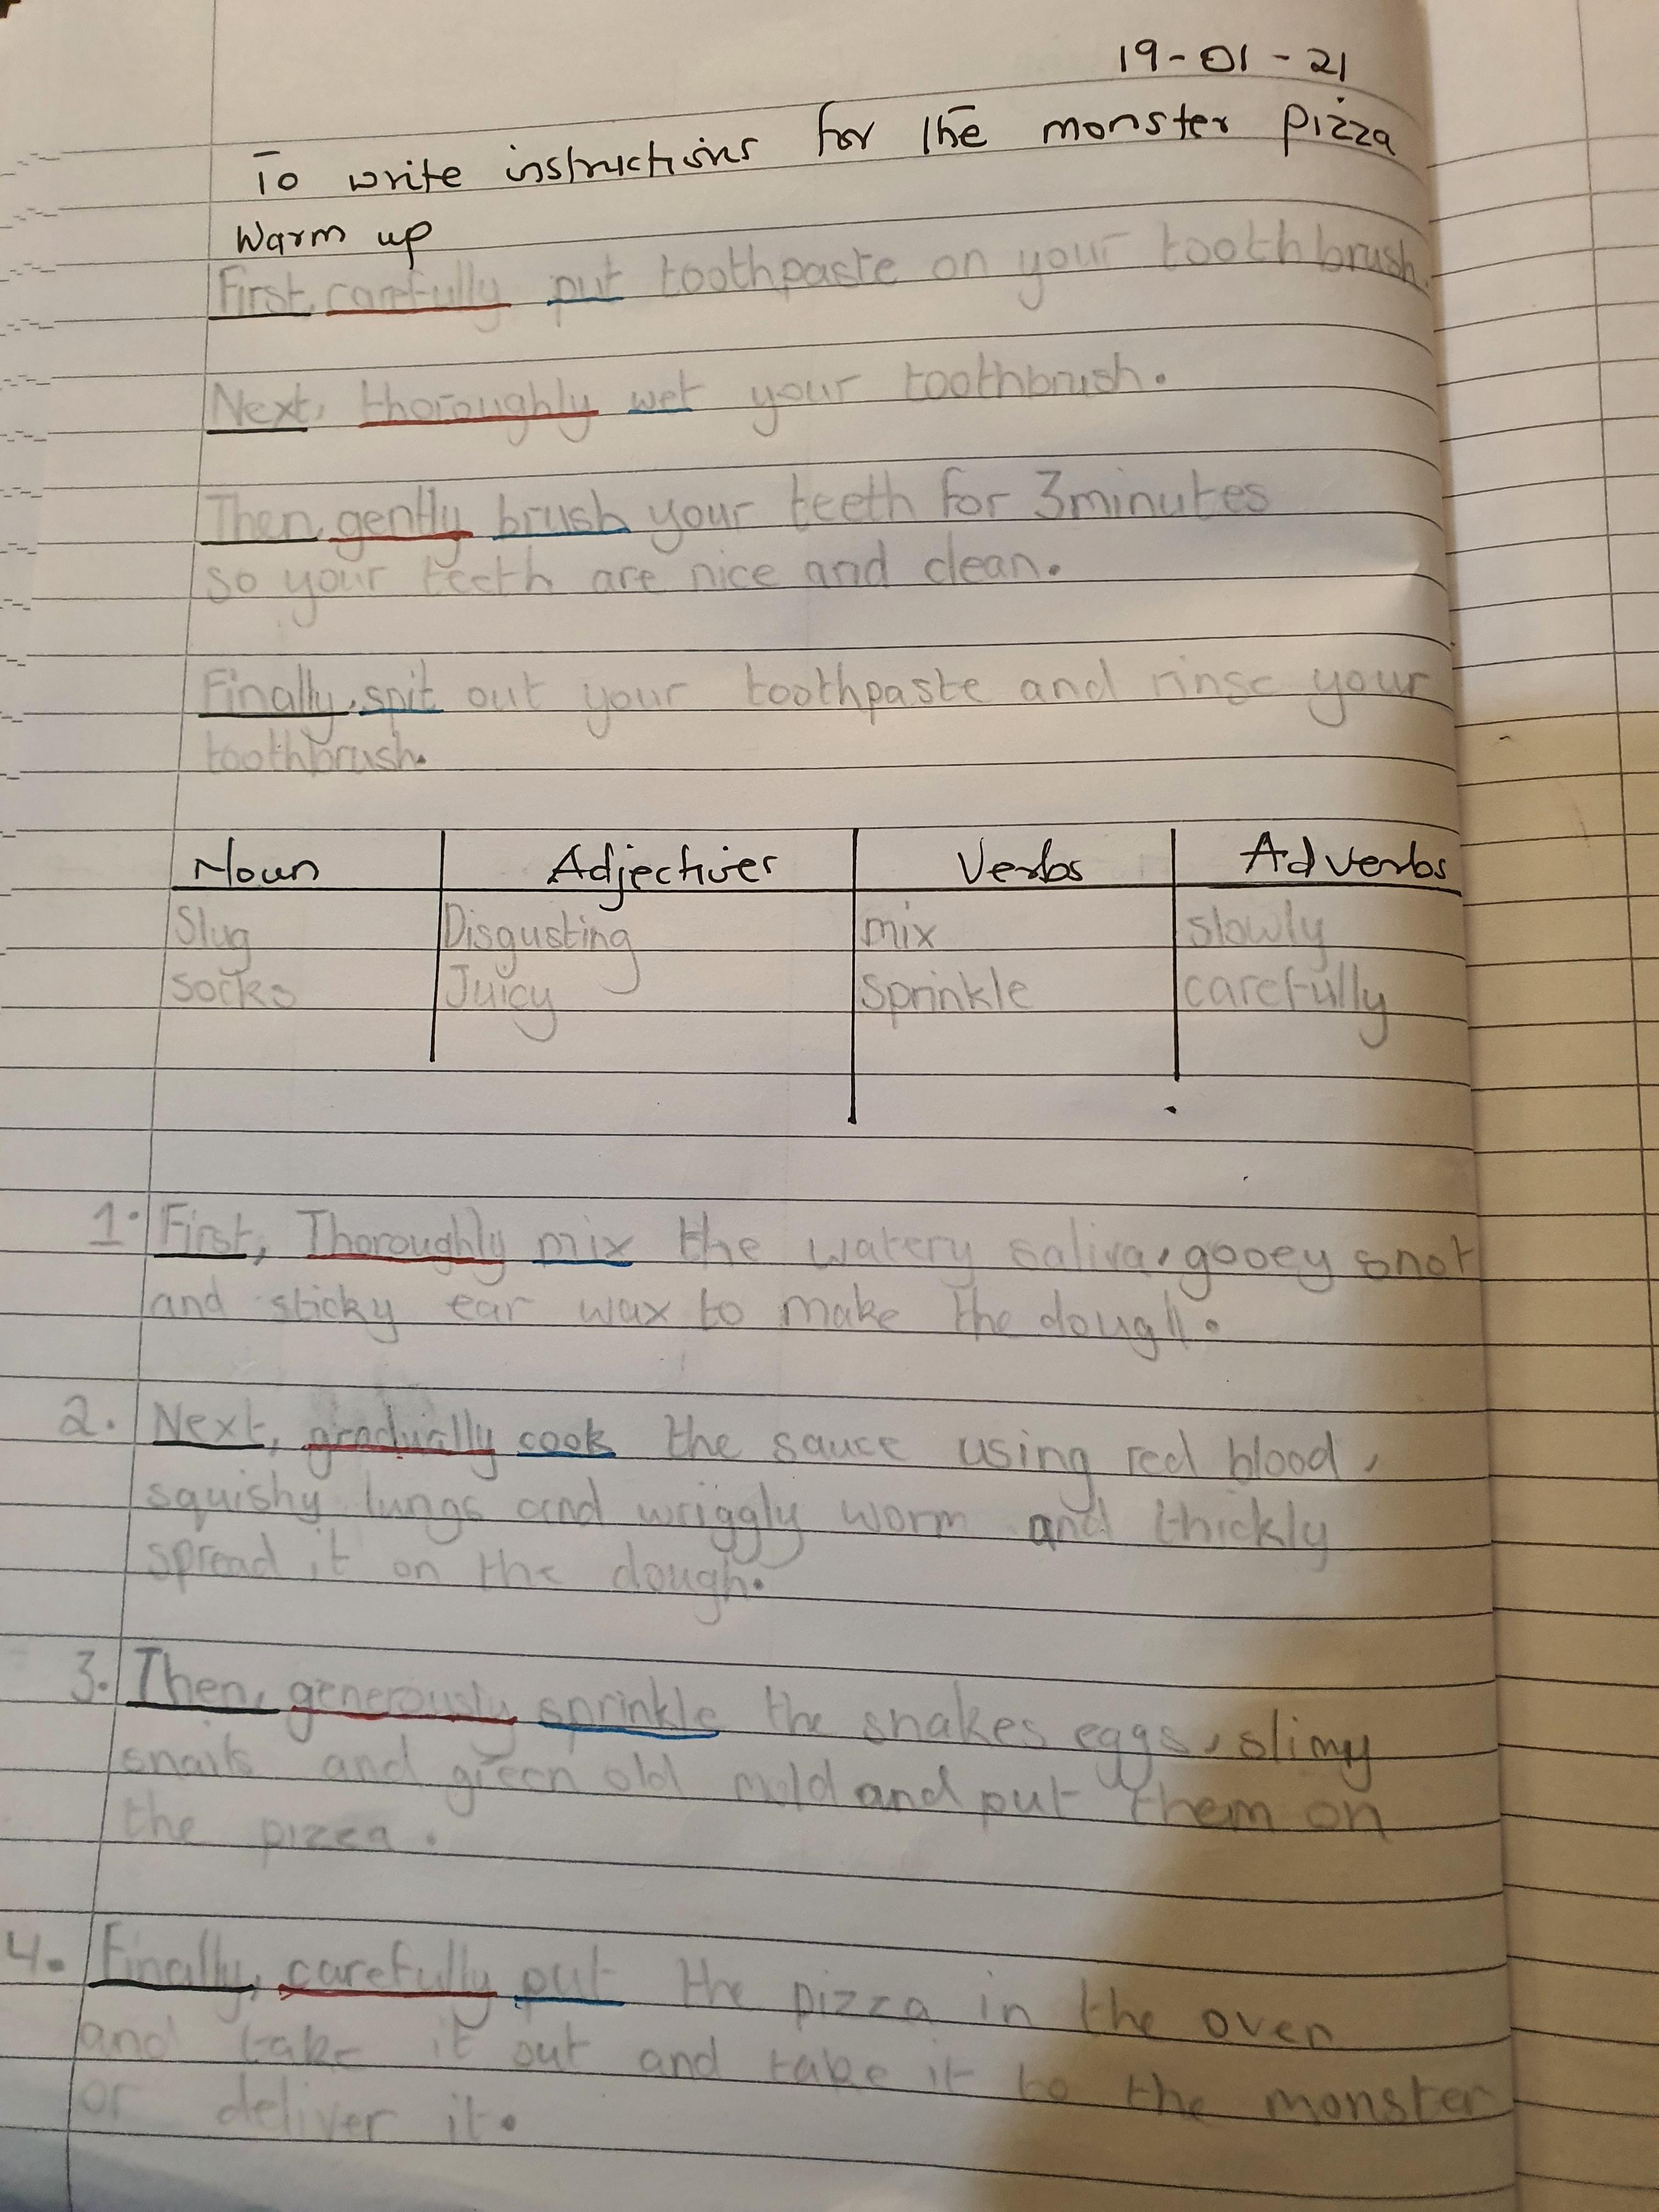 19-01-21
To write instructions for the monster pizza
Warm up
First, carefully put toothpaste on your toothbrush.
Next, thoroughly wet your toothbrush.
Then, gently brush your teeth for 3minutes
so your teeth are nice and clean.
Finally, spit out your toothpaste and rinse your
toothbrush.
Noun Adjectives Verbs Adverbs
Slug Disgusting mix slowly
socks Juicy sprinkle carefully
1. First, Thoroughly mix the watery saliva, gooey snot
and sticky ear wax to make the dough.
2. Next, gradually cook the sauce using red blood,
squishy lungs and wriggly worm and thickly
spread it on the dough.
3. Then, generously sprinkle the snakes eggs, slimy
snails and green old mold and put them on
the pizza.
4. Finally, carefully put the pizza in the oven
and take it out and take it to the monster
or deliver it.